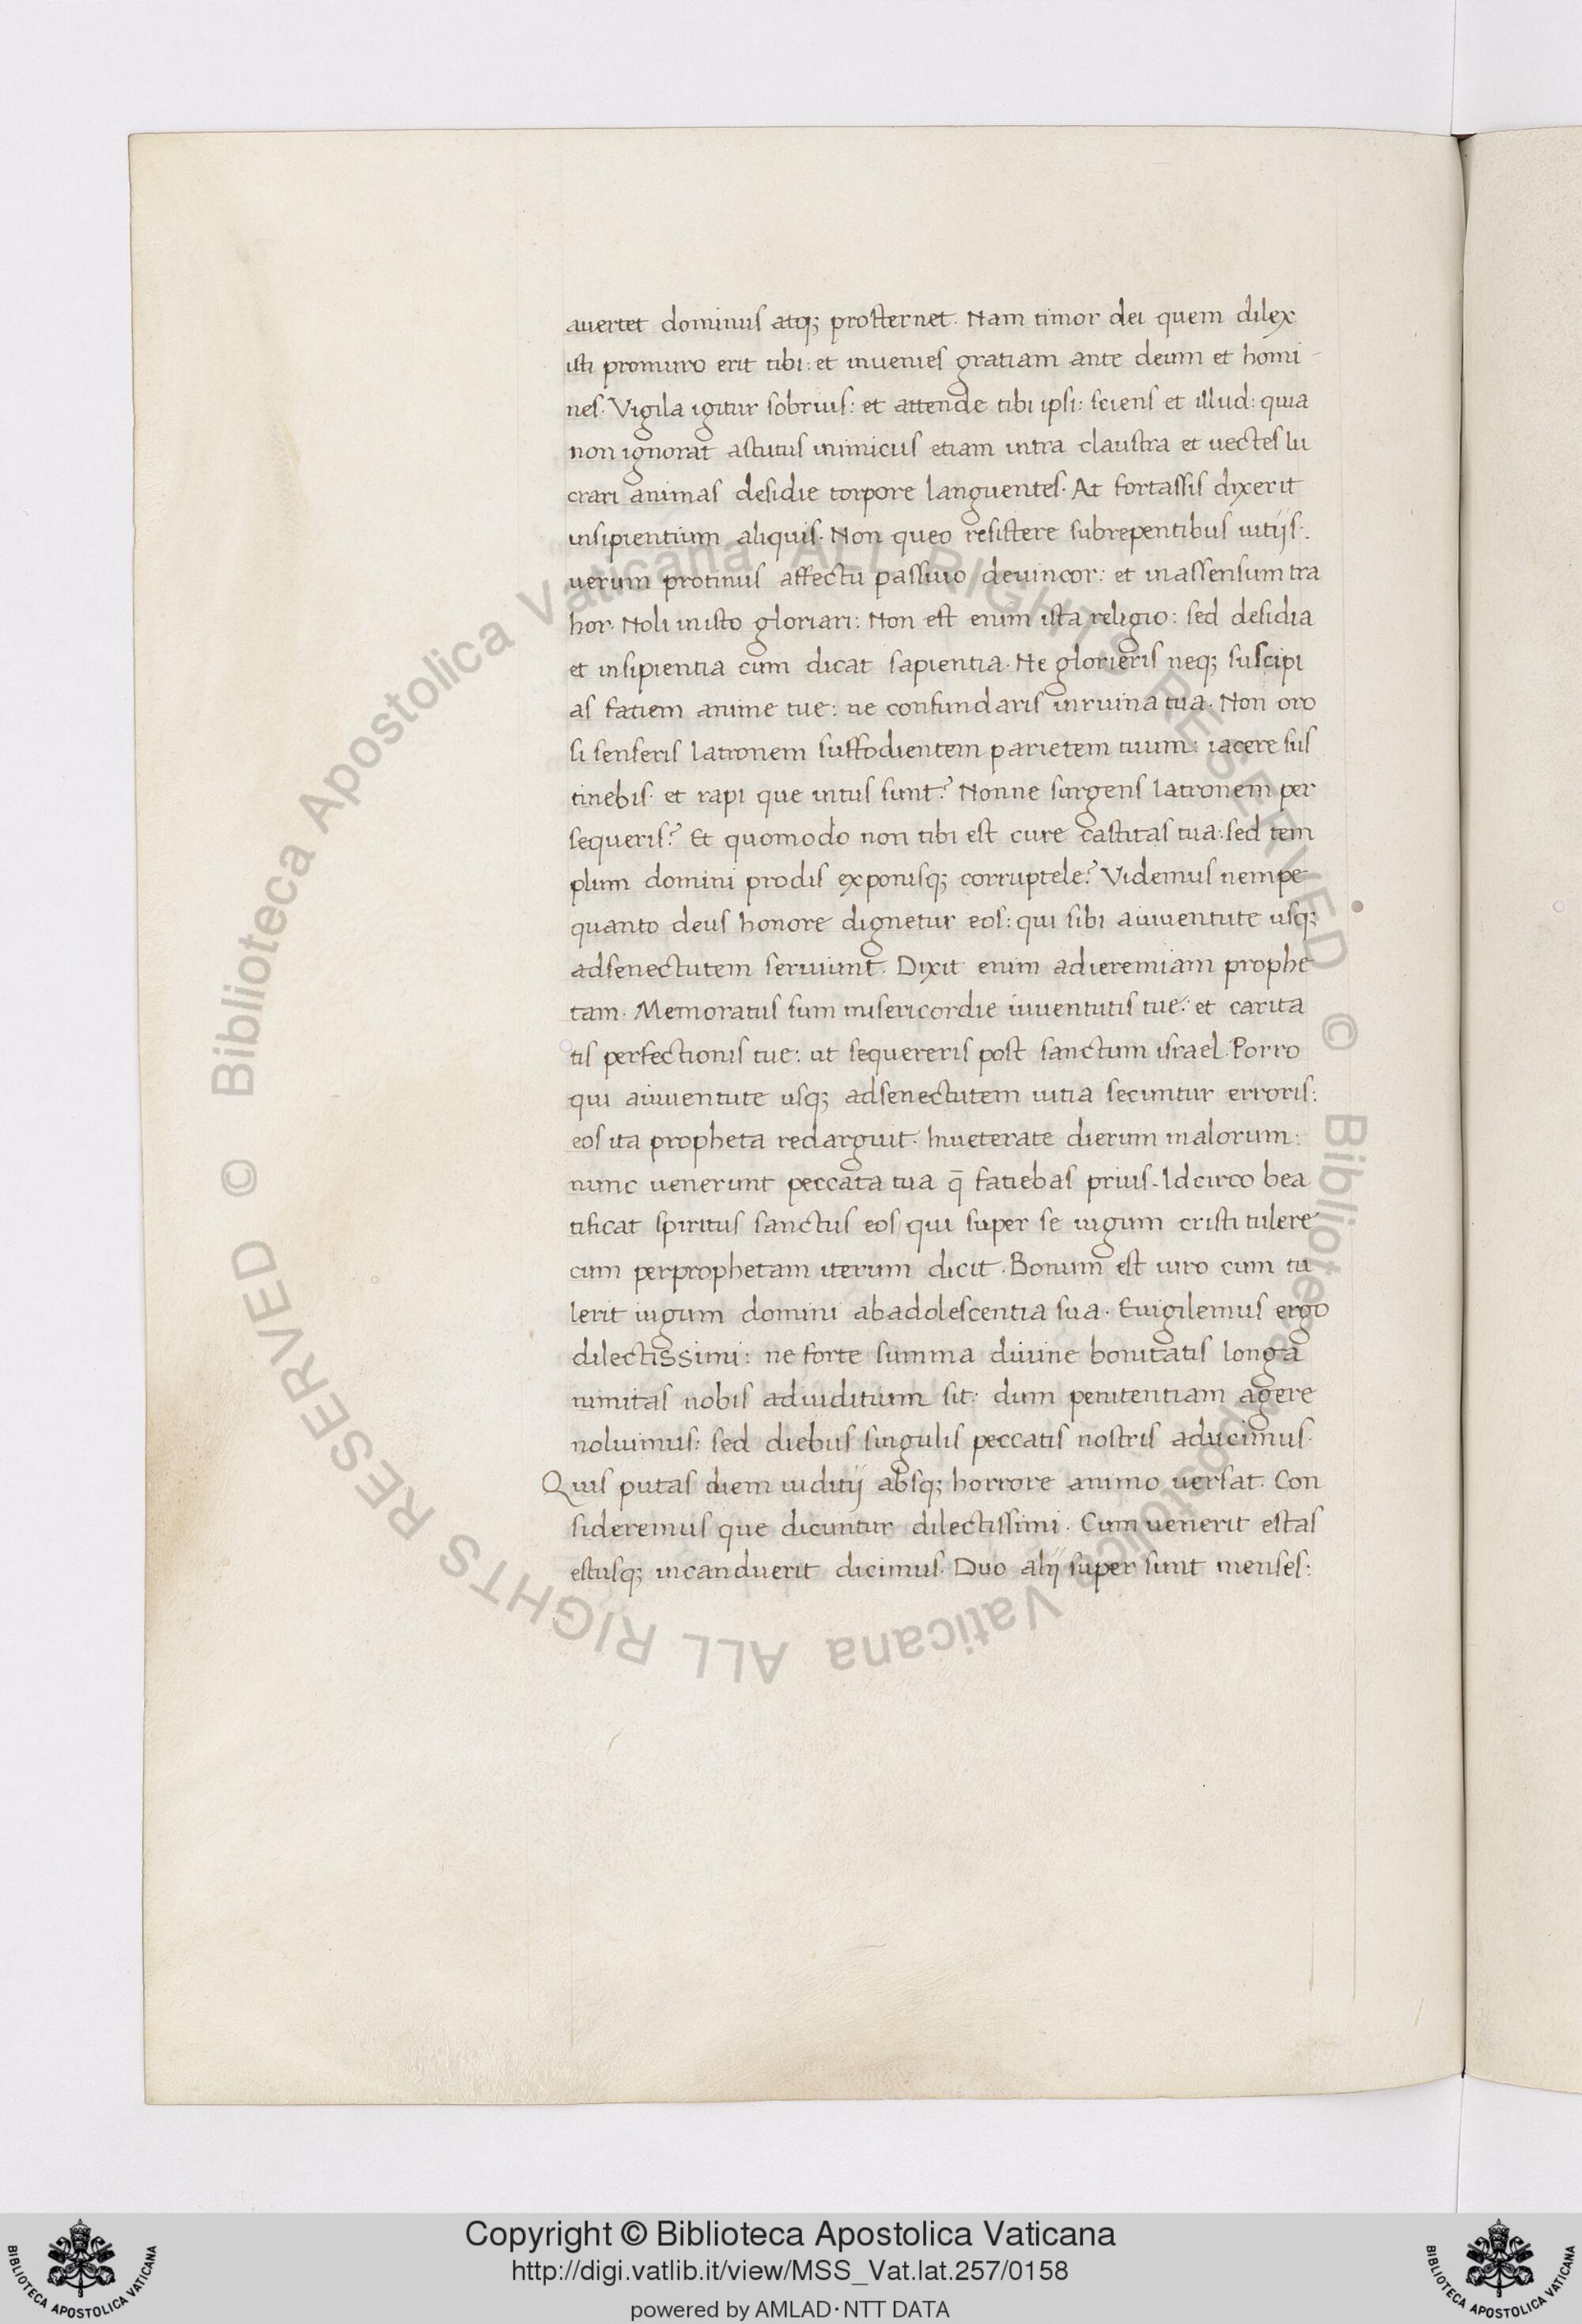 auertet dominus atq; prosternet. Nam timor dei quem dilex
isti promuro erit tibi: et inuenies gratiam ante deum et homi-
nes. Vigila igitur sobrius: et attende tibi ipsi: sciens et illud: quia
non ignorat astutus inimicus etiam intra claustra et uectes lu
crari animas desidie torpore languentes. At fortassis dixerit
insipientium aliquis. Non queo resistere subrepentibus uitijs:
uerum protinus affectu passiuo deuincor: et inassensum tra
hor. Noli inisto gloriari: Non est enim ista religio: sed desidia
et insipientia cum dicat sapientia. Ne glorieris neq; suscipi
as fatiem anime tue: ne confundaris inruina tua. Non oro
si senseris latronem suffodientem parietem tuum: iacere sus
tinebis. et rapi que intus sunt? Nonne surgens latronem per
sequeris? Et quomodo non tibi est cure castitas tua: sed tem
plum domini prodis exponisq; corruptele? Videmus nempe
quanto deus honore dignetur eos: qui sibi aiuuentute usq;
adsenectutem seruiunt. Dixit enim adieremiam prophe
tam. Memoratus sum misericordie iuuentutis tue: et carita
tis perfectionis tue: ut sequereris post sanctum israel. Porro
qui aiuuentute usq; adsenectutem uitia secuntur erroris:
eos ita propheta redarguit. Inueterate dierum malorum:
nunc uenerunt peccata tua q̄ fatiebas prius. Idcirco bea
tificat spiritus sanctus eos qui super se iugum cristi tulere
cum perprophetam iterum dicit. Bonum est uiro cum tu
lerit iugum domini abadolescentia sua. Euigilemus ergo
dilectissimi: ne forte summa diuine bonitatis longa
nimitas nobis adiuditium sit: dum penitentiam agere
noluimus: sed diebus singulis peccatis nostris aducimus.
Quis putas diem iuditij absq; horrore animo uersat. Con
sideremus que dicuntur dilectissimi. Cum uenerit estas
estusq; incanduerit dicimus. Duo alij super sunt menses:
© Biblioteca Apostolica Vaticana ALL RIGHTS RESERVED
© Biblioteca Apostolica Vaticana ALL RIGHTS RESERVED
Copyright © Biblioteca Apostolica Vaticana
http://digi.vatlib.it/view/MSS_Vat.lat.257/0158
powered by AMLAD·NTT DATA
BIBLIOTECA APOSTOLICA VATICANA
BIBLIOTECA APOSTOLICA VATICANA